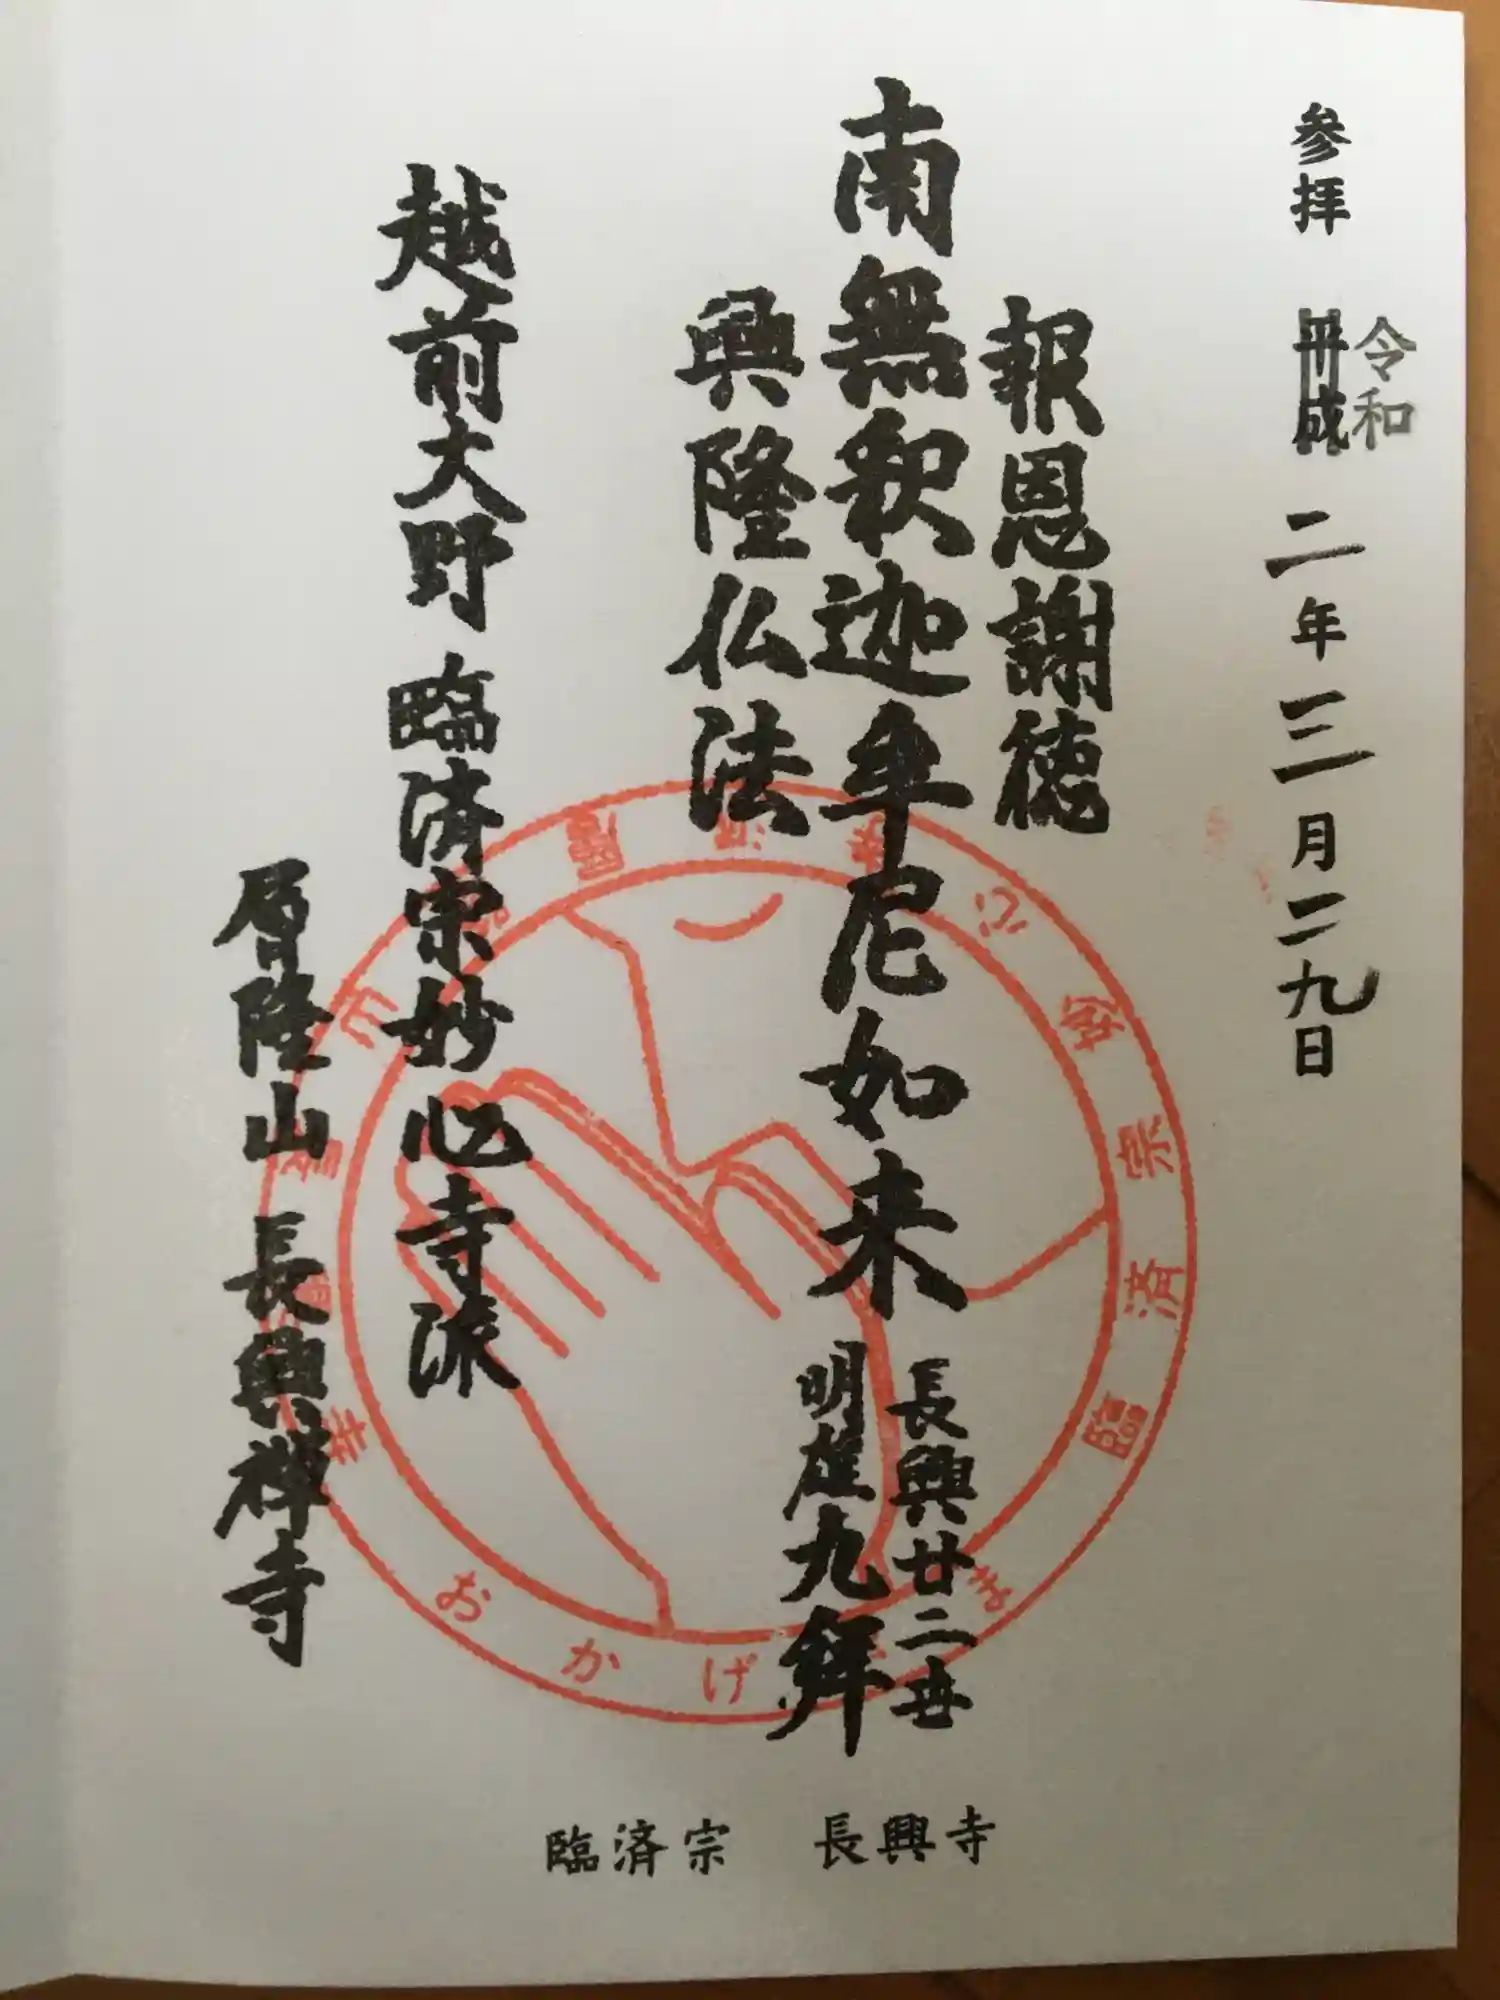 参拝 平成 二年 三月二九日
令和
報恩謝徳
南無釈迦牟尼如来
興隆仏法
長興廿二世
明雄九拜
越前大野 臨済宗妙心寺派
層隆山 長興禅寺
臨済宗 妙心
おかげ
ま
臨済宗 長興寺